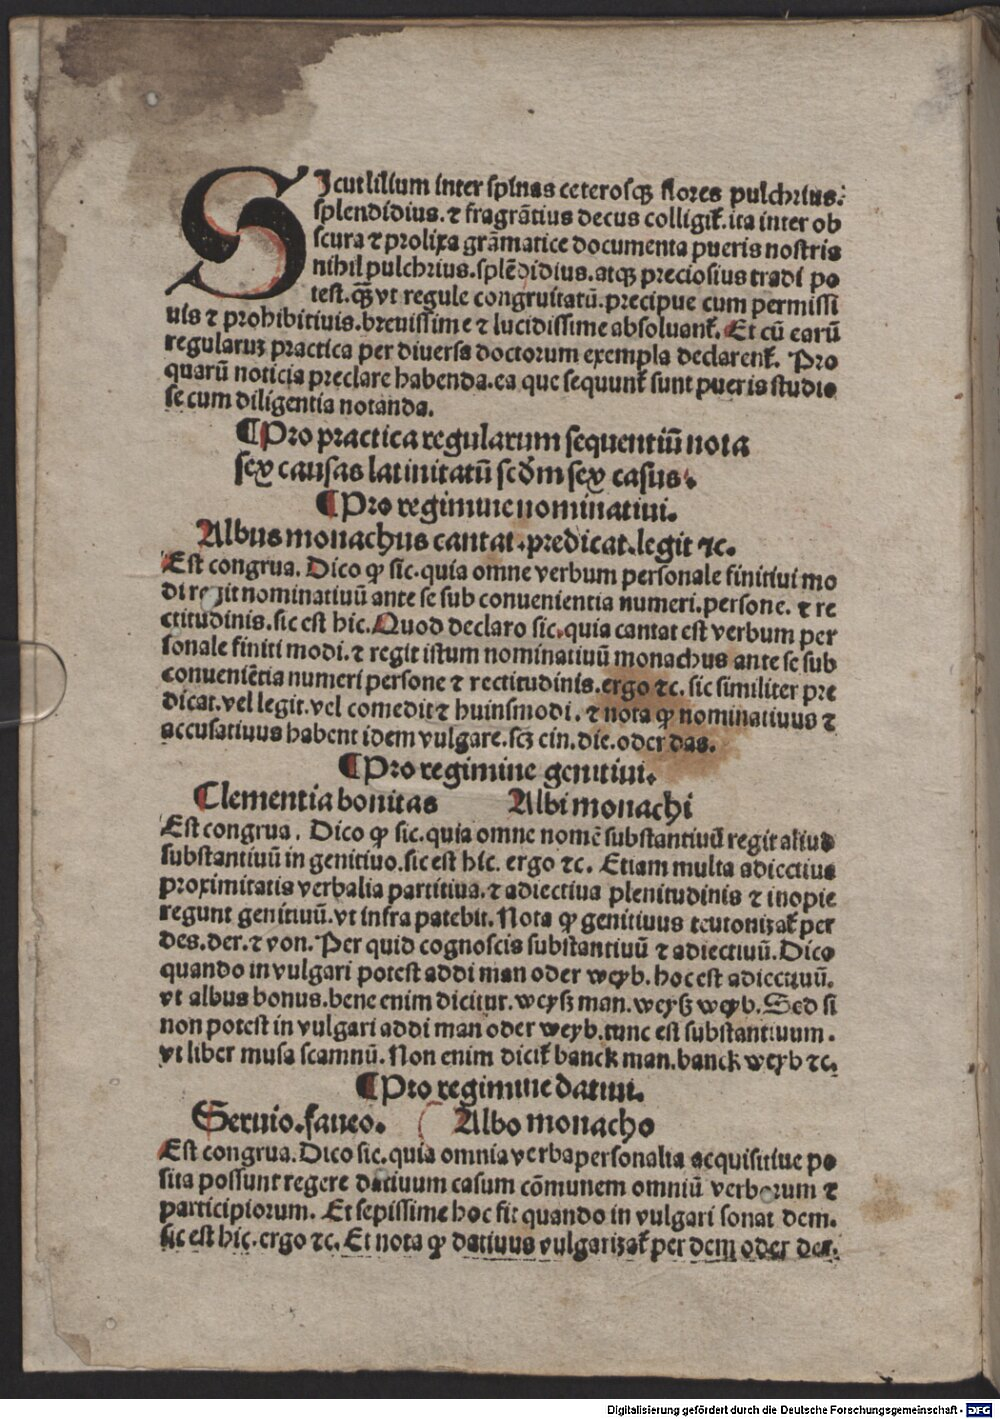 SIcut lilium inter spinas ceterosqꝫ flores pulchrius.
splendidius. ⁊ fragrātius decus colligit᷑. ita inter ob
scura ⁊ prolixa grāmatice documenta pueris nostris
nihil pulchrius. splēdidius. atqꝫ preciosius tradi po
test. qꝫ̄ vt regule congruitatū. precipue cum permissi
uis ⁊ prohibitiuis. breuissime ⁊ lucidissime absoluant᷑. Et cū earū
regularuꝫ practica per diuersa doctorum exempla declarent᷑. Pro
quarū noticia preclare habenda. ea que sequunt᷑ sunt pueris studio
se cum diligentia notanda.
¶Pro practica regularum sequentiū nota
sex causas latinitatū scd̄m sex casus.
¶Pro regimine nominatiui.
Albus monachus cantat. predicat. legit ⁊c.
Est congrua. Dico ꝙ sic. quia omne verbum personale finitiui mo
di regit nominatiuū ante se sub conuenientia numeri. persone. ⁊ re
ctitudinis. sic est hic. Quod declaro sic. quia cantat est verbum per
sonale finiti modi. ⁊ regit istum nominatiuū monachus ante se sub
conueniētia numeri persone ⁊ rectitudinis. ergo ⁊c. sic similiter pre
dicat. vel legit. vel comedit ⁊ huiusmodi. ⁊ nota ꝙ nominatiuus ⁊
accusatiuus habent idem vulgare. scꝫ ein. die. oder das.
¶Pro regimine genitiui.
Clementia bonitas Albi monachi
Est congrua. Dico ꝙ sic. quia omne nomē substantiuū regit aliud
substantiuū in genitiuo. sic est hic. ergo ⁊c. Etiam multa adiectiua
proximitatis verbalia partitiua. ⁊ adiectiua plenitudinis ⁊ inopie
regunt genitiuū. vt infra patebit. Nota ꝙ genitiuus teutonizat᷑ per
des. der. ⁊ von. Per quid cognoscis substantiuū ⁊ adiectiuū. Dico
quando in vulgari potest addi man oder weyb. hoc est adiectiuū.
vt albus bonus. bene enim dicitur. weyß man. weyß weyb. Sed si
non potest in vulgari addi man oder weyb. tunc est substantiuum.
vt liber musa scamnū. Non enim dicit᷑ banck man. banck weyb ⁊c.
¶Pro regimine datiui.
Seruio. faueo. Albo monacho
Est congrua. Dico sic. quia omnia verba personalia acquisitiue po
sita possunt regere datiuum casum cōmunem omniū verborum ⁊
participiorum. Et sepissime hoc fit quando in vulgari sonat dem.
sic est hic. ergo ⁊c. Et nota ꝙ datiuus vulgarizat᷑ per dem oder der.
Digitalisierung gefördert durch die Deutsche Forschungsgemeinschaft - DFG